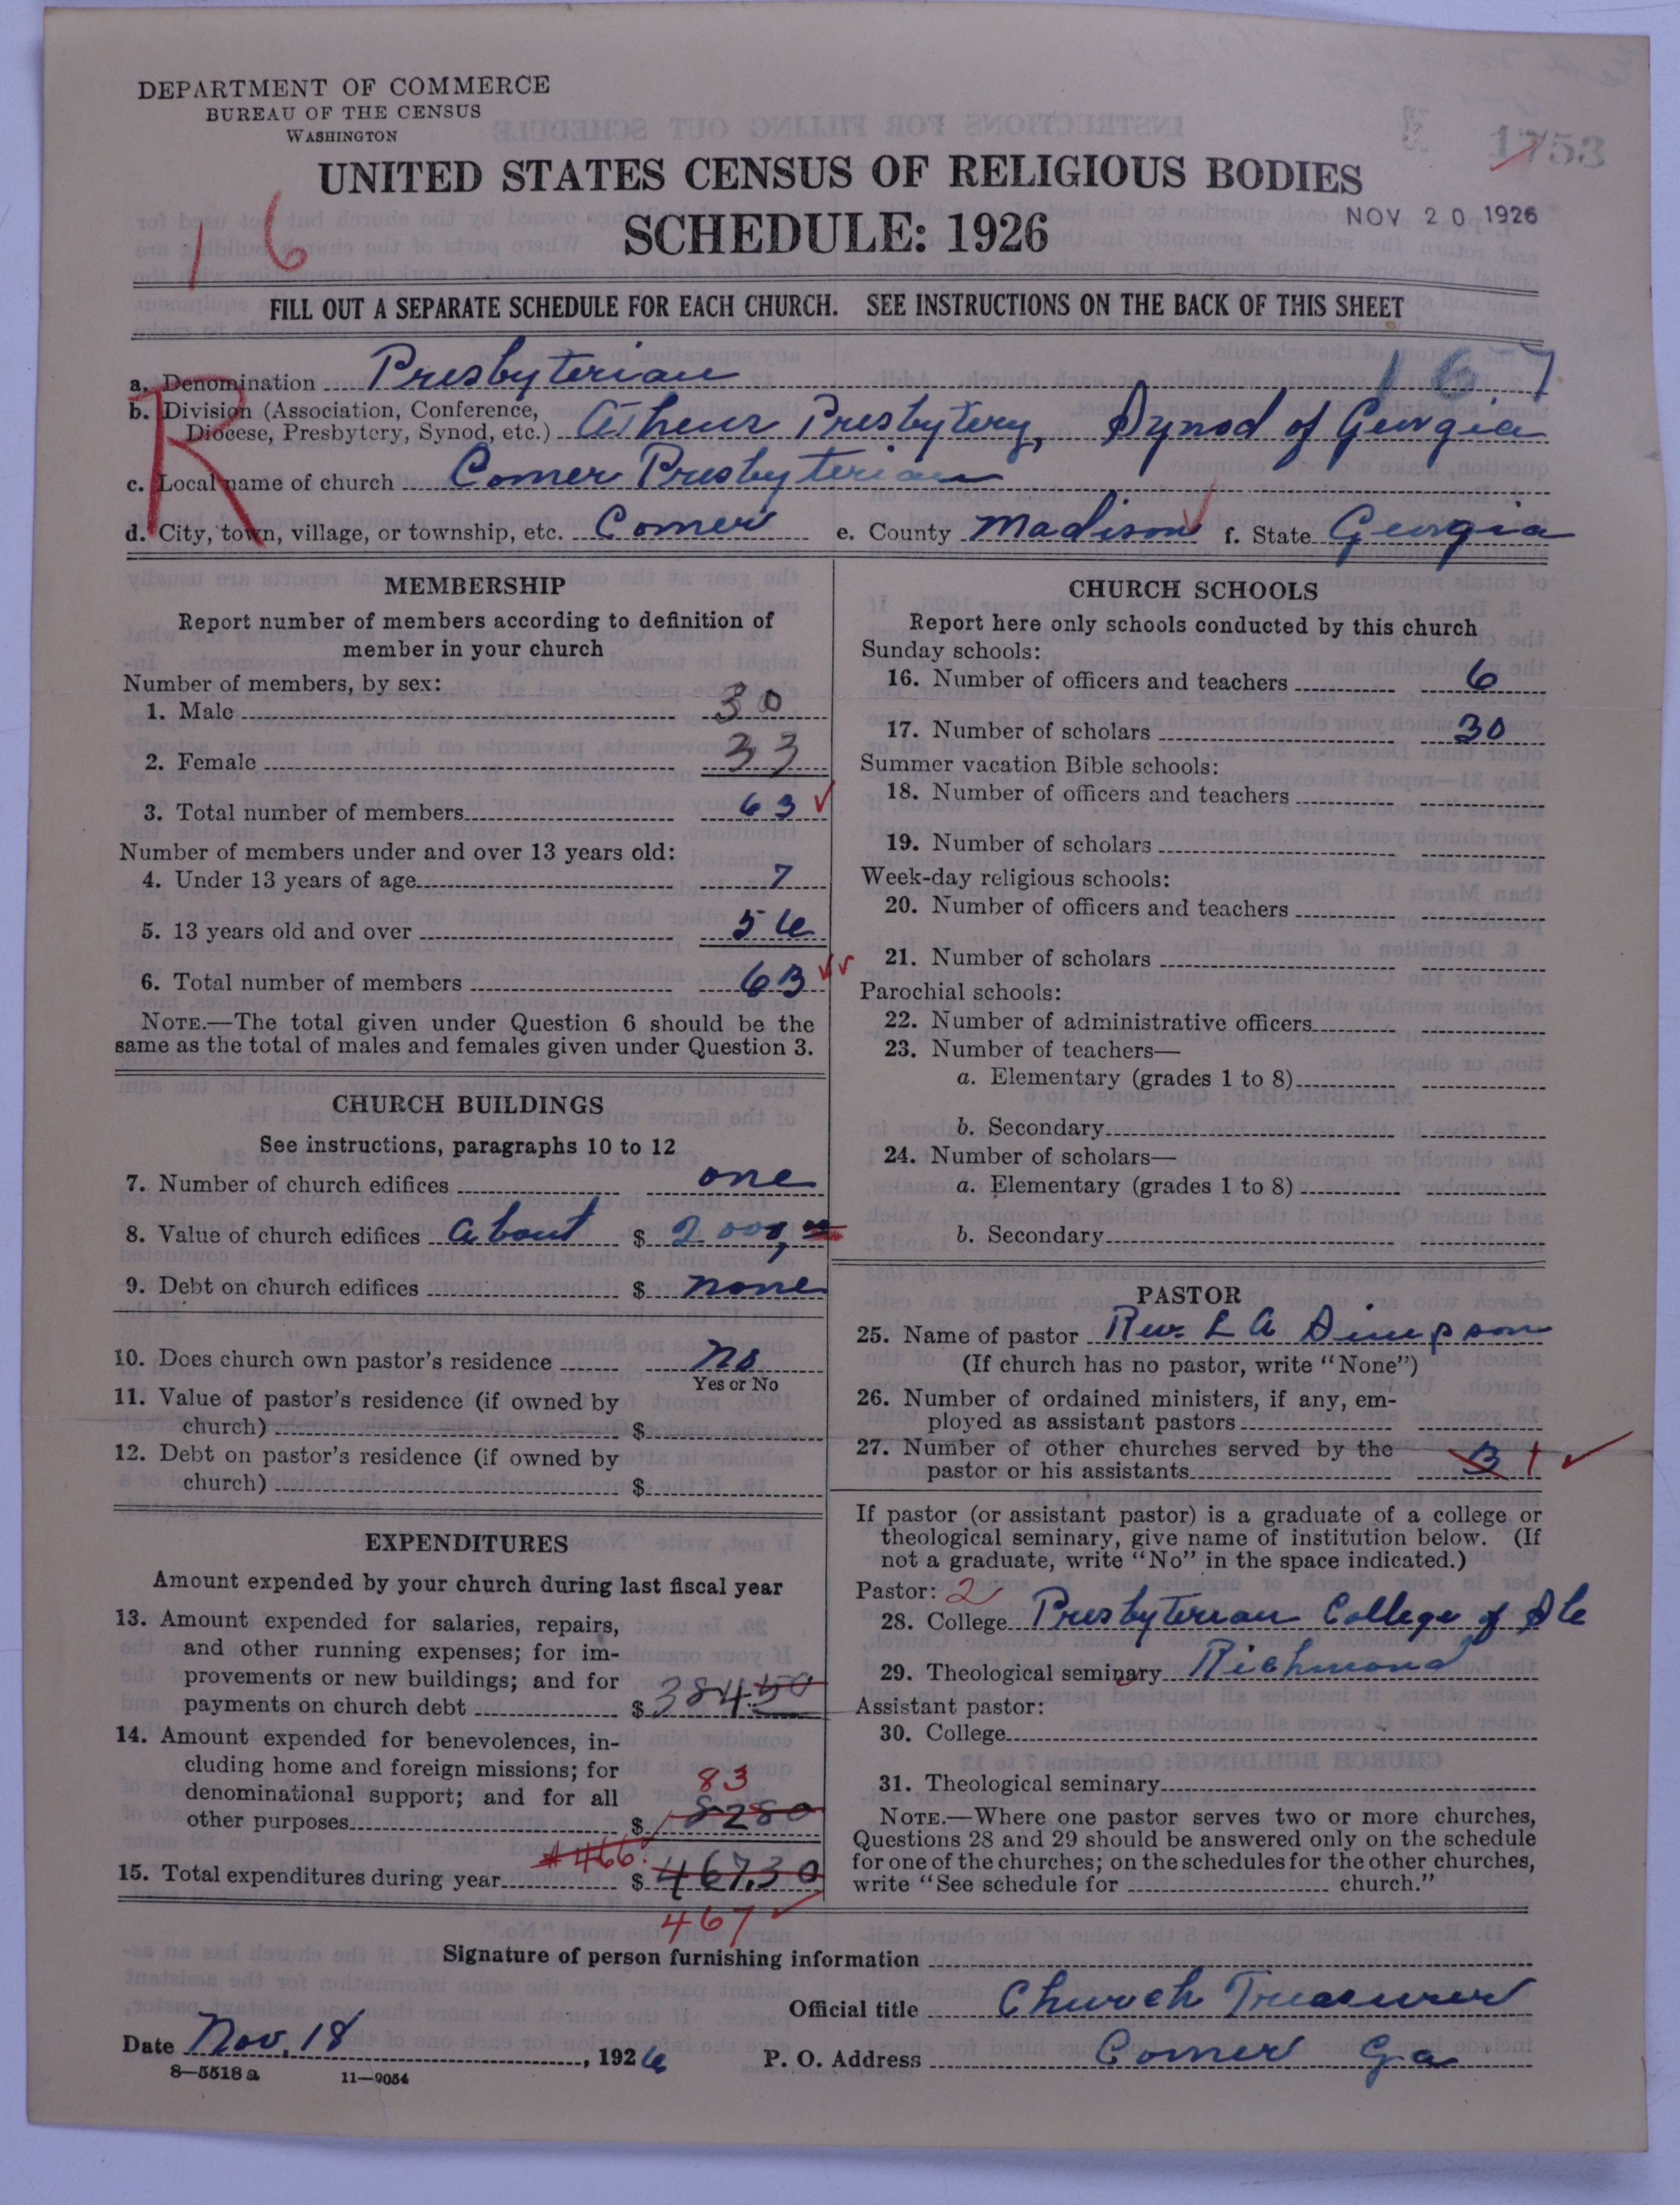 DEPARTMENT OF COMMERCE
BUREAU OF THE CENSUS
WASHINGTON
1753
UNITED STATES CENSUS OF RELIGIOUS BODIES
SCHEDULE: 1926
NOV 20 1926
16
FILL OUT A SEPARATE SCHEDULE FOR EACH CHURCH. SEE INSTRUCTIONS ON THE BACK OF THIS SHEET
R
a. Denomination Presbyterian 167
b. Division (Association, Conference,
Diocese, Presbytery, Synod, etc.) Athens Presbytery, Synod of Georgia
c. Local name of church Comer Presbyterian
d. City, town, village, or township, etc. Comer e. County Madison f. State Georgia
MEMBERSHIP
Report number of members according to definition of
member in your church
Number of members, by sex:
1. Male 30
2. Female 33
3. Total number of members 63
Number of members under and over 13 years old:
4. Under 13 years of age 7
5. 13 years old and over 56
6. Total number of members 63
NOTE.—The total given under Question 6 should be the
same as the total of males and females given under Question 3.
CHURCH BUILDINGS
See instructions, paragraphs 10 to 12
7. Number of church edifices one
8. Value of church edifices About $ 2000,00
9. Debt on church edifices $ none
10. Does church own pastor's residence no
Yes or No
11. Value of pastor's residence (if owned by
church) $
12. Debt on pastor's residence (if owned by
church) $
EXPENDITURES
Amount expended by your church during last fiscal year
13. Amount expended for salaries, repairs,
and other running expenses; for im-
provements or new buildings; and for
payments on church debt $ 384.50
14. Amount expended for benevolences, in-
cluding home and foreign missions; for
denominational support; and for all 83
other purposes $ 8280
$466.
15. Total expenditures during year $ 467.30
467
CHURCH SCHOOLS
Report here only schools conducted by this church
Sunday schools:
16. Number of officers and teachers 6
17. Number of scholars 30
Summer vacation Bible schools:
18. Number of officers and teachers
19. Number of scholars
Week-day religious schools:
20. Number of officers and teachers
21. Number of scholars
Parochial schools:
22. Number of administrative officers
23. Number of teachers—
a. Elementary (grades 1 to 8)
b. Secondary
24. Number of scholars—
a. Elementary (grades 1 to 8)
b. Secondary
PASTOR
25. Name of pastor Rev. L A Simpson
(If church has no pastor, write "None")
26. Number of ordained ministers, if any, em-
ployed as assistant pastors
27. Number of other churches served by the
pastor or his assistants 3 1
If pastor (or assistant pastor) is a graduate of a college or
theological seminary, give name of institution below. (If
not a graduate, write "No" in the space indicated.)
Pastor: 2
28. College Presbyterian College of S C
29. Theological seminary Richmond
Assistant pastor:
30. College
31. Theological seminary
NOTE.—Where one pastor serves two or more churches,
Questions 28 and 29 should be answered only on the schedule
for one of the churches; on the schedules for the other churches,
write "See schedule for church."
Signature of person furnishing information
Official title Church Treasurer
Date Nov. 18, 1926 P. O. Address Comer Ga
8—5518a 11—9054